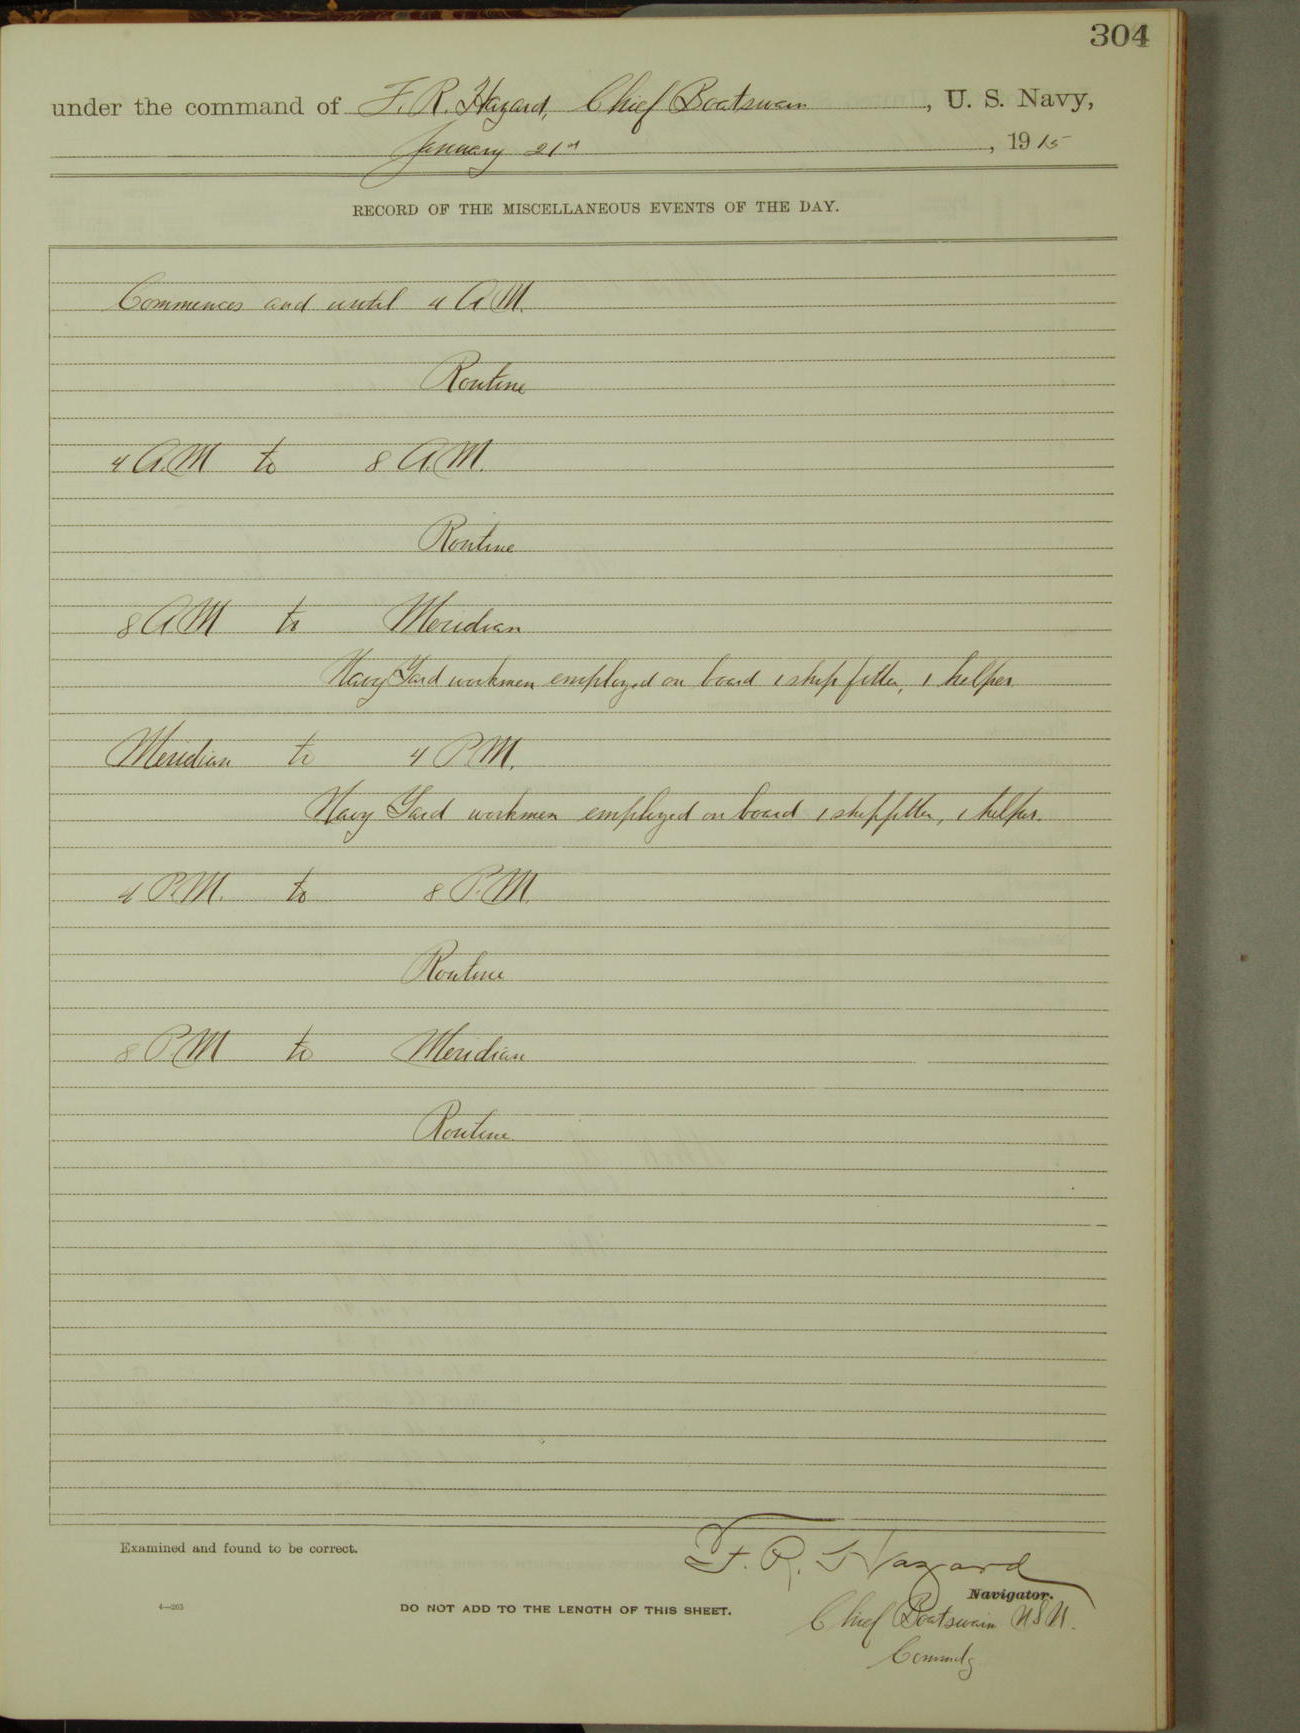 304
under the command of F. R. Hazard, Chief Boatswain, U. S. Navy,
January 21st, 1915
RECORD OF THE MISCELLANEOUS EVENTS OF THE DAY.
Commences and until 4 A.M.
Routine
4 A.M to 8 A.M.
Routine
8 A M to Meridian
Navy Yard workmen employed on board 1 ship fitter, 1 helper
Meridian to 4 P M.
Navy Yard workmen employed on board 1 shipfitter, 1 helper.
4 P.M. to 8 P.M.
Routine
8 P.M to Meridian
Routine
Examined and found to be correct.
F. R. Hazard
Navigator.
4—263
DO NOT ADD TO THE LENGTH OF THIS SHEET.
Chief Boatswain U S N.
Commdg